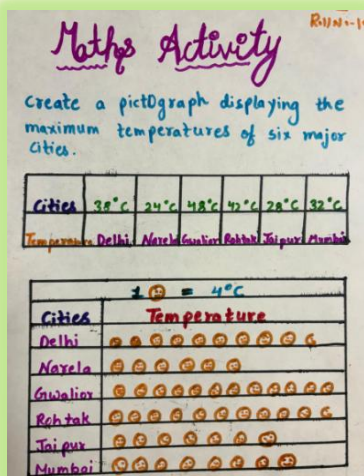 Maths Activity
Create a pictOgraph displaying the
maximum temperatures of six major
cities.
Cities 38°C 24°C 48°C 42°C 28°C 32°C
Temperature Delhi Narela Gwalior Rohtak Jaipur Mumbai
1 = 4°C
Cities Temperature
Delhi
Narela
Gwalior
Rohtak
Jaipur
Mumbai